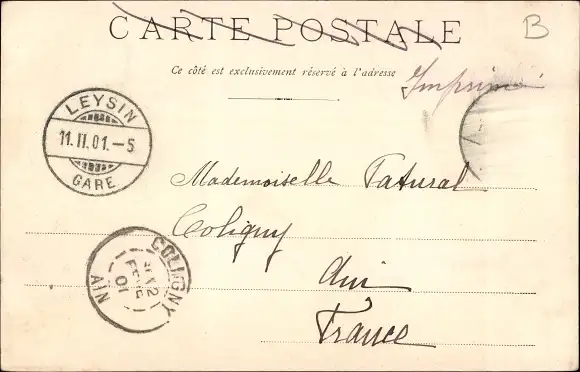 CARTE POSTALE
B
Ce côté est exclusivement réservé à l'adresse
Imprimé
LEYSIN
11.II.01.-5
GARE
Mademoiselle Patural
Coligny
Ain
France
COLIGNY
12
01
AIN